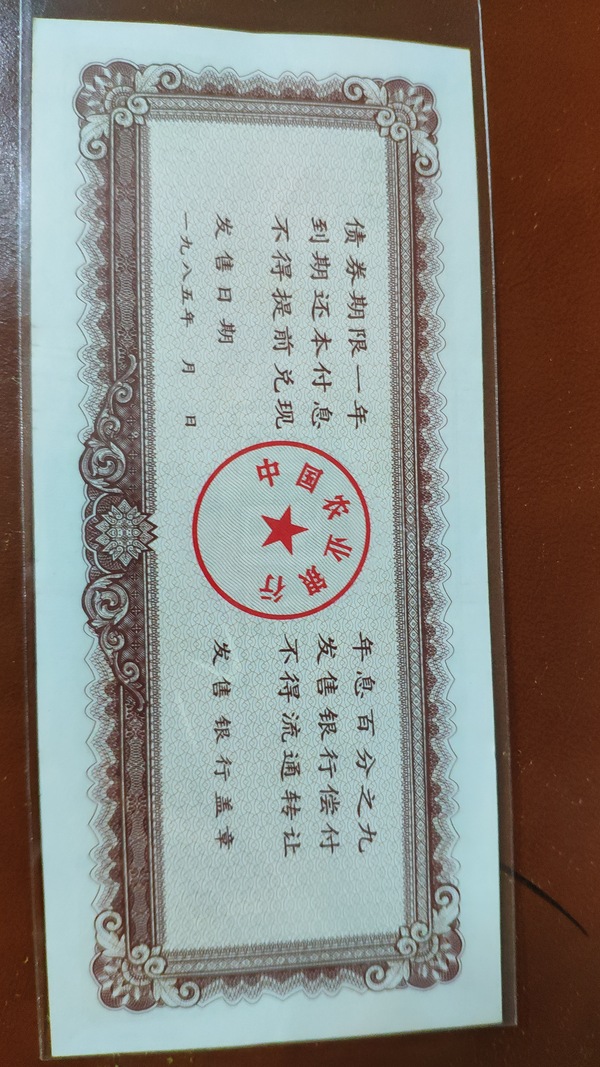 债券期限一年
到期还本付息
不得提前兑现
发售日期
一九八五年 月 日
中国农业银行
年息百分之九
发售银行偿付
不得流通转让
发售银行盖章